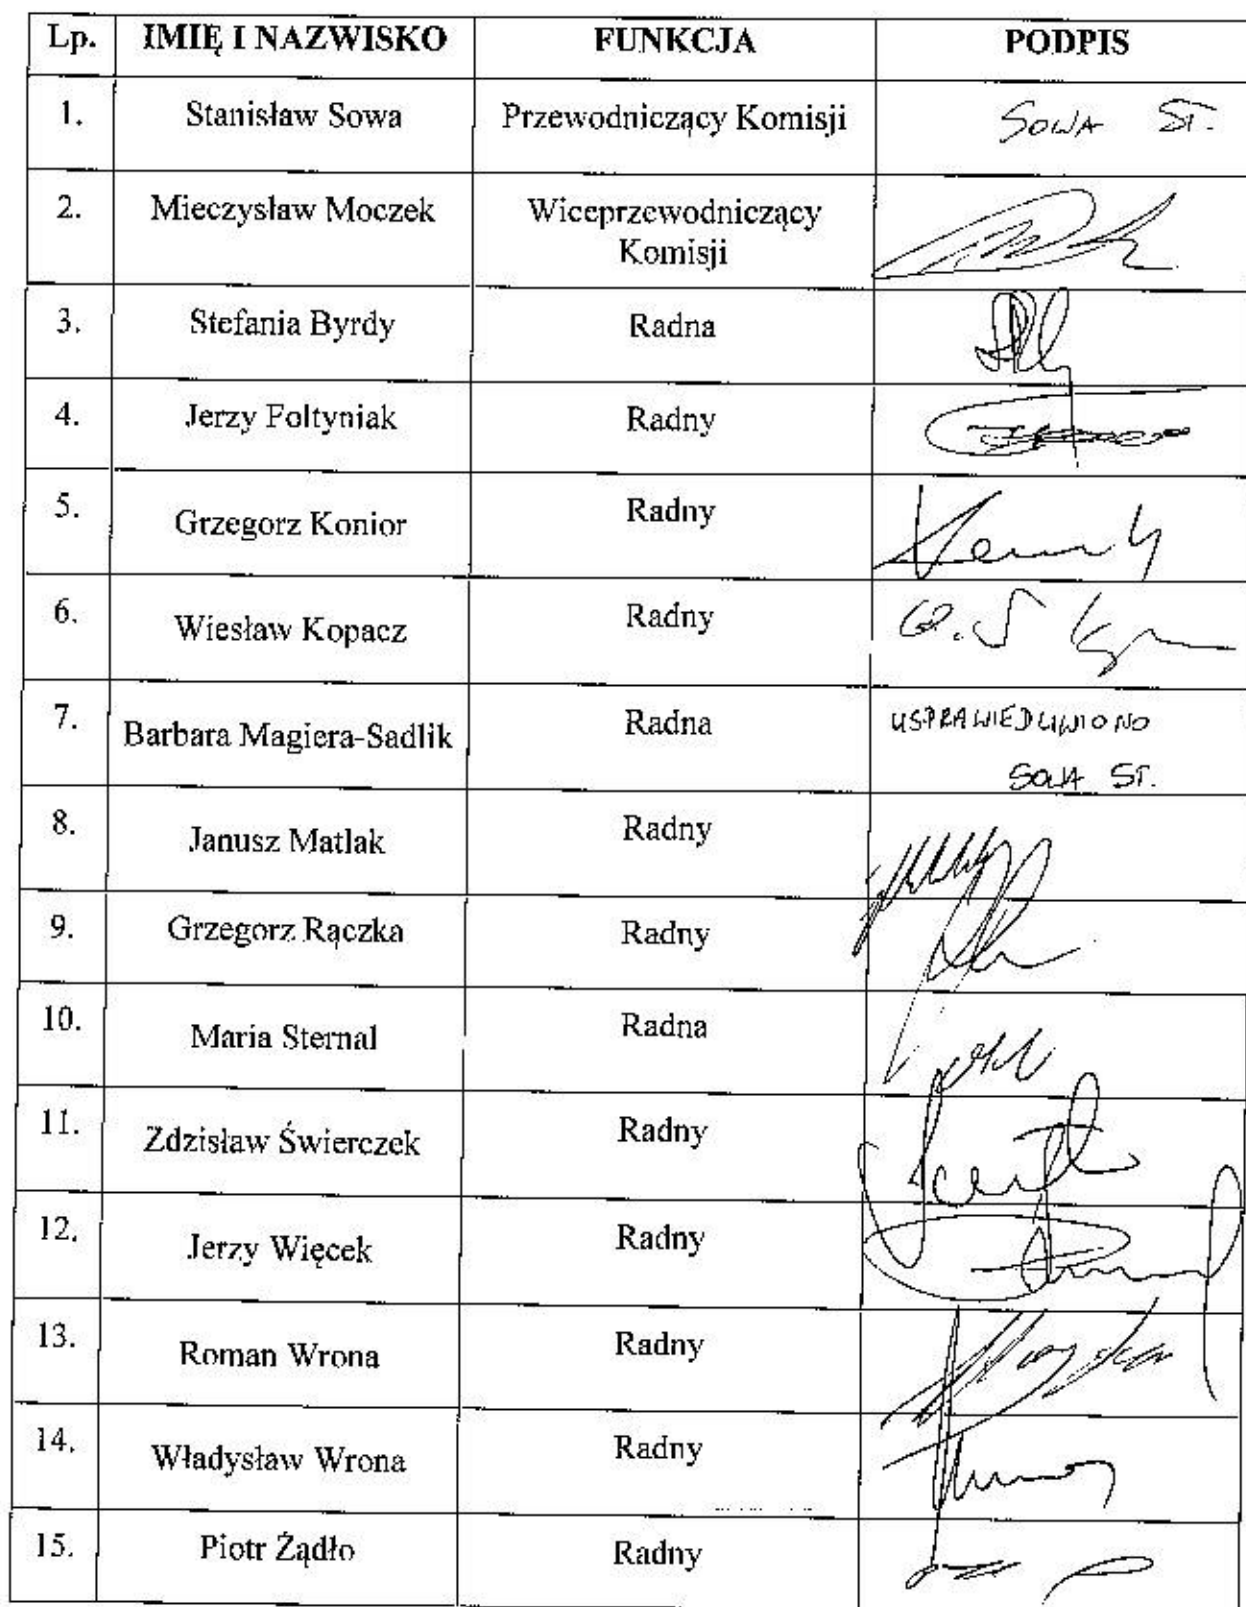 Lp. IMIĘ I NAZWISKO FUNKCJA PODPIS
1. Stanisław Sowa Przewodniczący Komisji SOWA ST.
2. Mieczysław Moczek Wiceprzewodniczący
Komisji
3. Stefania Byrdy Radna
4. Jerzy Foltyniak Radny
5. Grzegorz Konior Radny
6. Wiesław Kopacz Radny
7. Barbara Magiera-Sadlik Radna USPRAWIEDLIWIONO
SOWA ST.
8. Janusz Matlak Radny
9. Grzegorz Rączka Radny
10. Maria Sternal Radna
11. Zdzisław Świerczek Radny
12. Jerzy Więcek Radny
13. Roman Wrona Radny
14. Władysław Wrona Radny
15. Piotr Żądło Radny